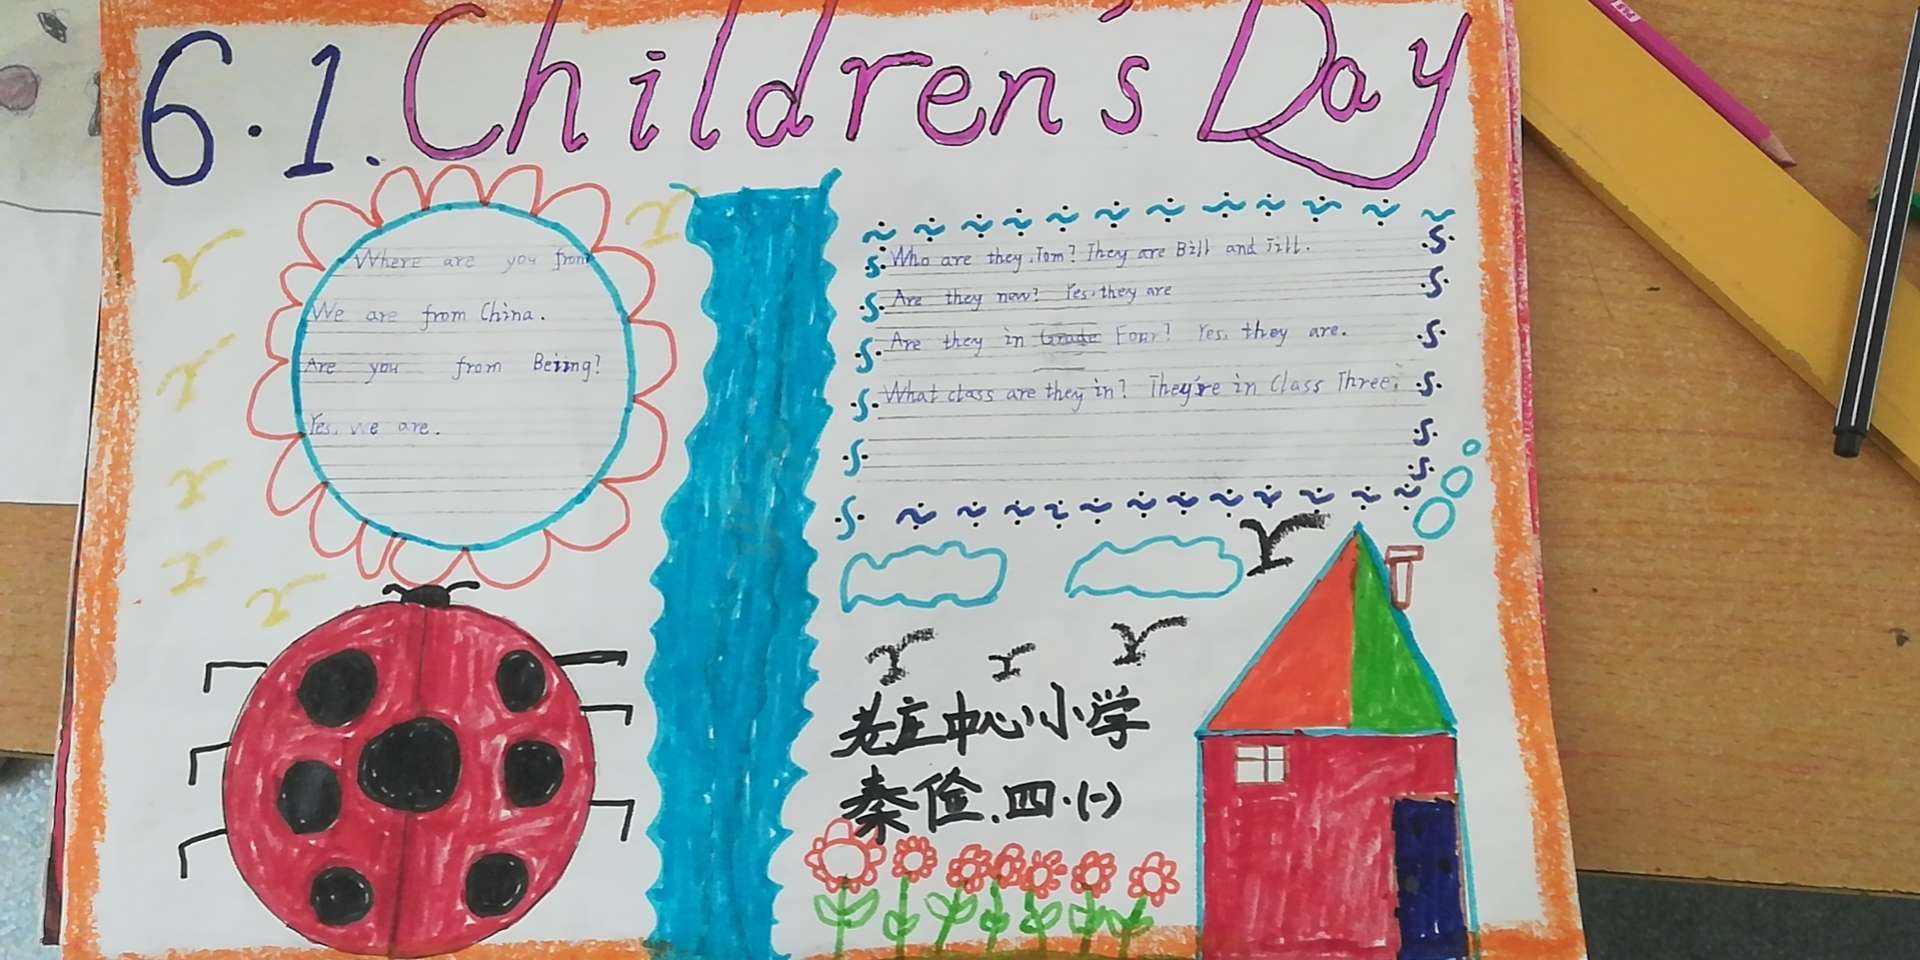 6.1. Children's Day
Where are you from
We are from China.
Are you from Beiing?
Yes, we are.
Who are they, Tom? They are Bill and Jill.
Are they new? Yes, they are
Are they in Grade Four? Yes, they are.
What class are they in? They're in Class Three.
老庄中心小学
秦俭.四.(一)